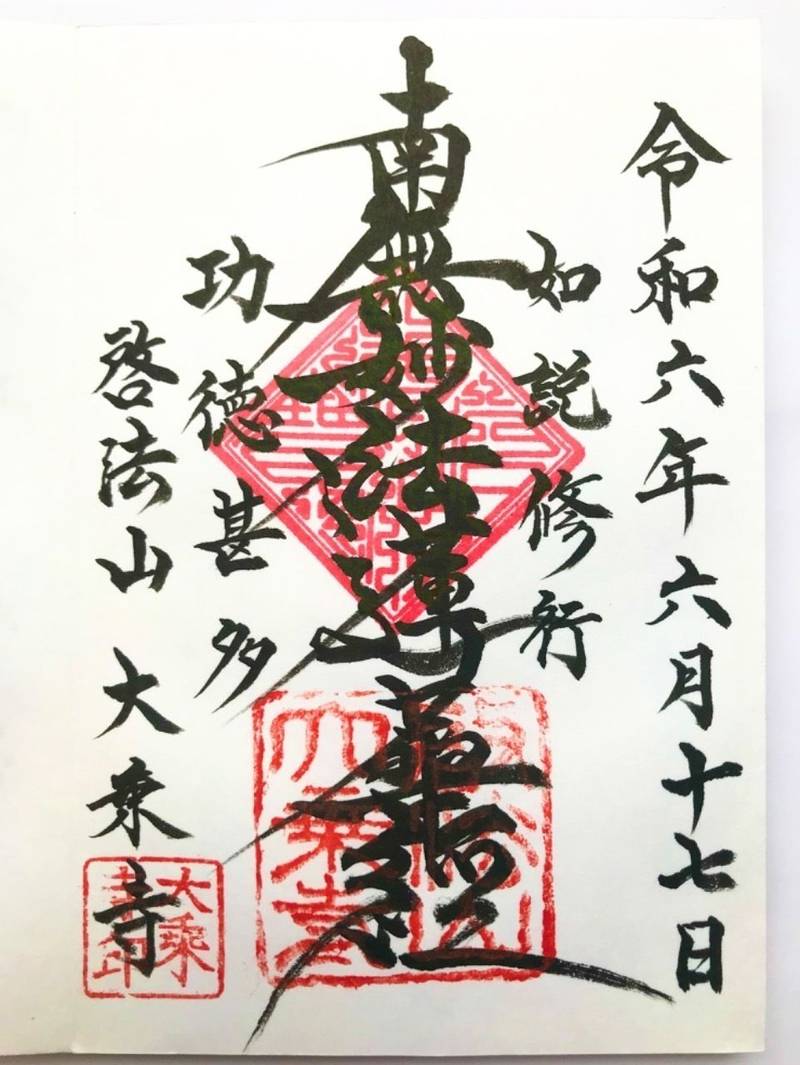 令和六年六月十七日
如説修行
南無妙法蓮華経
功徳甚多
啓法山 大乗寺